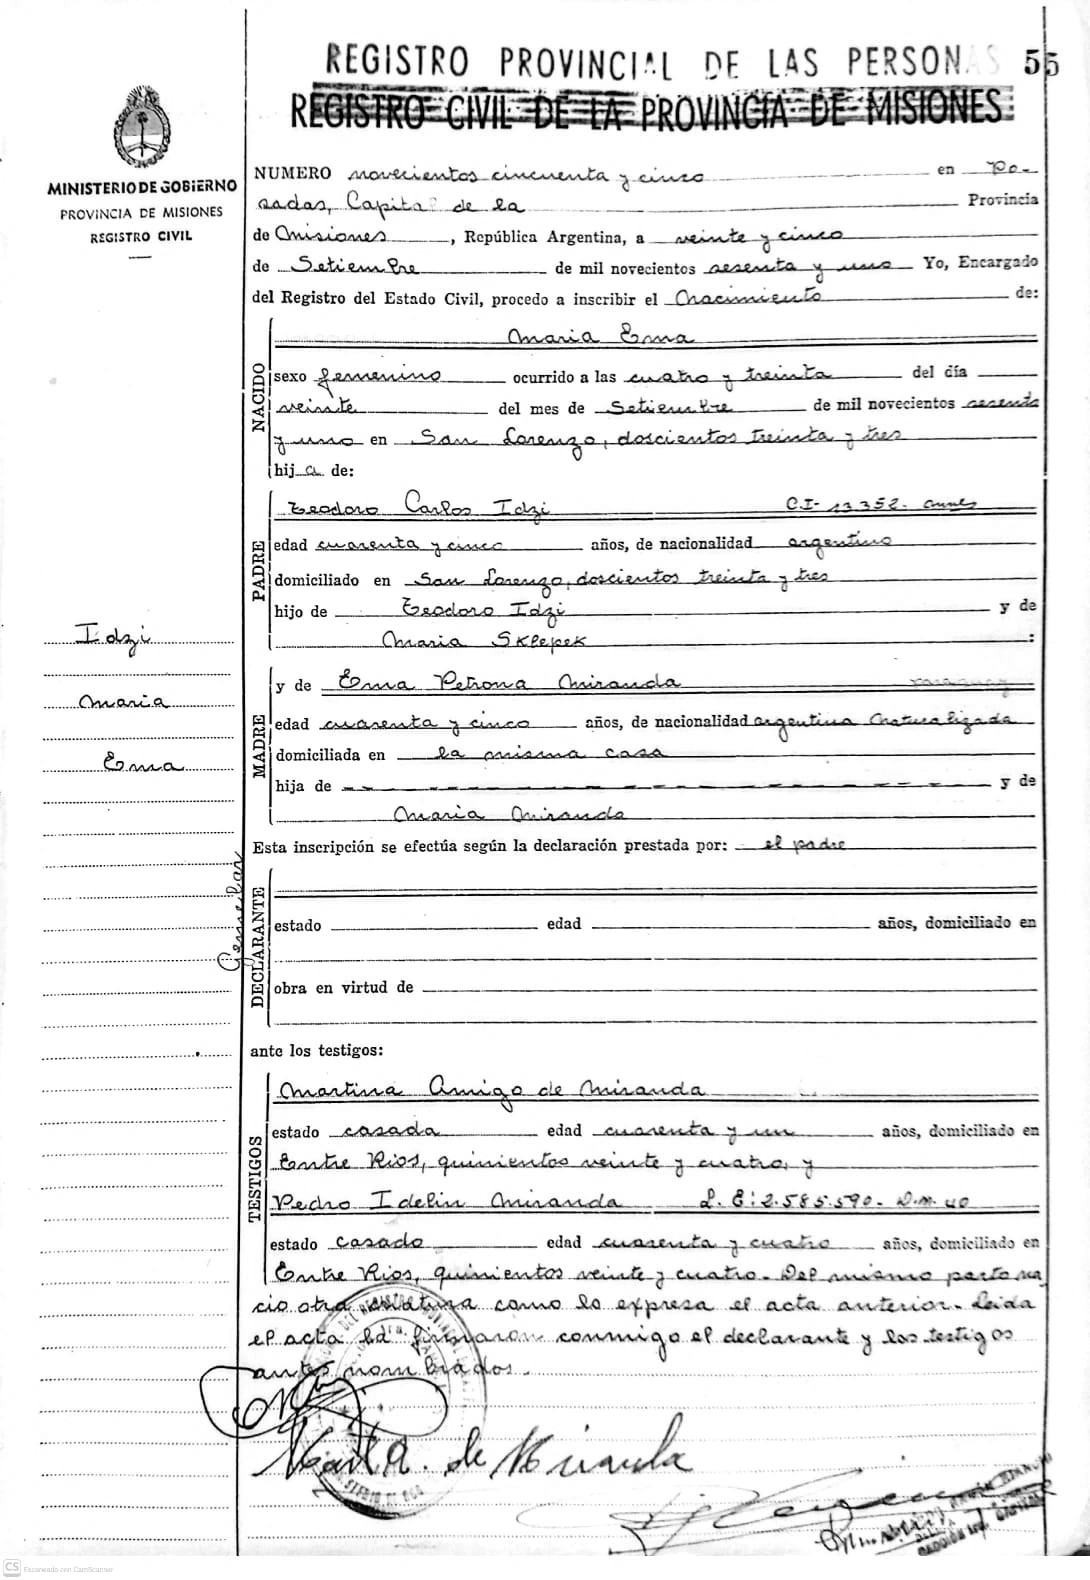 REGISTRO PROVINCIAL DE LAS PERSONAS 55
REGISTRO CIVIL DE LA PROVINCIA DE MISIONES
MINISTERIO DE GOBIERNO
PROVINCIA DE MISIONES
REGISTRO CIVIL
NUMERO novecientos cincuenta y cinco en Po-
sadas, Capital de la Provincia
de Misiones, República Argentina, a veinte y cinco
de Setiembre de mil novecientos sesenta y uno Yo, Encargado
del Registro del Estado Civil, procedo a inscribir el Nacimiento de:
NACIDO
Maria Ema
sexo femenino ocurrido a las cuatro y treinta del día
veinte del mes de Setiembre de mil novecientos sesenta
y uno en San Lorenzo, doscientos treinta y tres
hija de:
PADRE
Teodoro Carlos Idzi C.I- 13.352-
edad cuarenta y cinco años, de nacionalidad argentino
domiciliado en San Lorenzo, doscientos treinta y tres
hijo de Teodoro Idzi y de
Maria Sklepek :
Idzi
Maria
Ema
MADRE
y de Ema Petrona Miranda
edad cuarenta y cinco años, de nacionalidad argentina naturalizada
domiciliada en la misma casa
hija de - - - - - - - - - - y de
Maria Miranda
Esta inscripción se efectúa según la declaración prestada por: el padre
Gemelar
DECLARANTE
estado edad años, domiciliado en
obra en virtud de
ante los testigos:
TESTIGOS
Martina Amigo de Miranda
estado casada edad cuarenta y un años, domiciliado en
Entre Rios, quinientos veinte y cuatro, y
Pedro Idelin Miranda L. E: 2.585.590- D.M. 40
estado casado edad cuarenta y cuatro años, domiciliado en
Entre Rios, quinientos veinte y cuatro. Del mismo parto na-
cio otra criatura como lo expresa el acta anterior. Leida
el acta la firmaron conmigo el declarante y los testigos
antes nombrados.
de Miranda
CS Escaneado con CamScanner